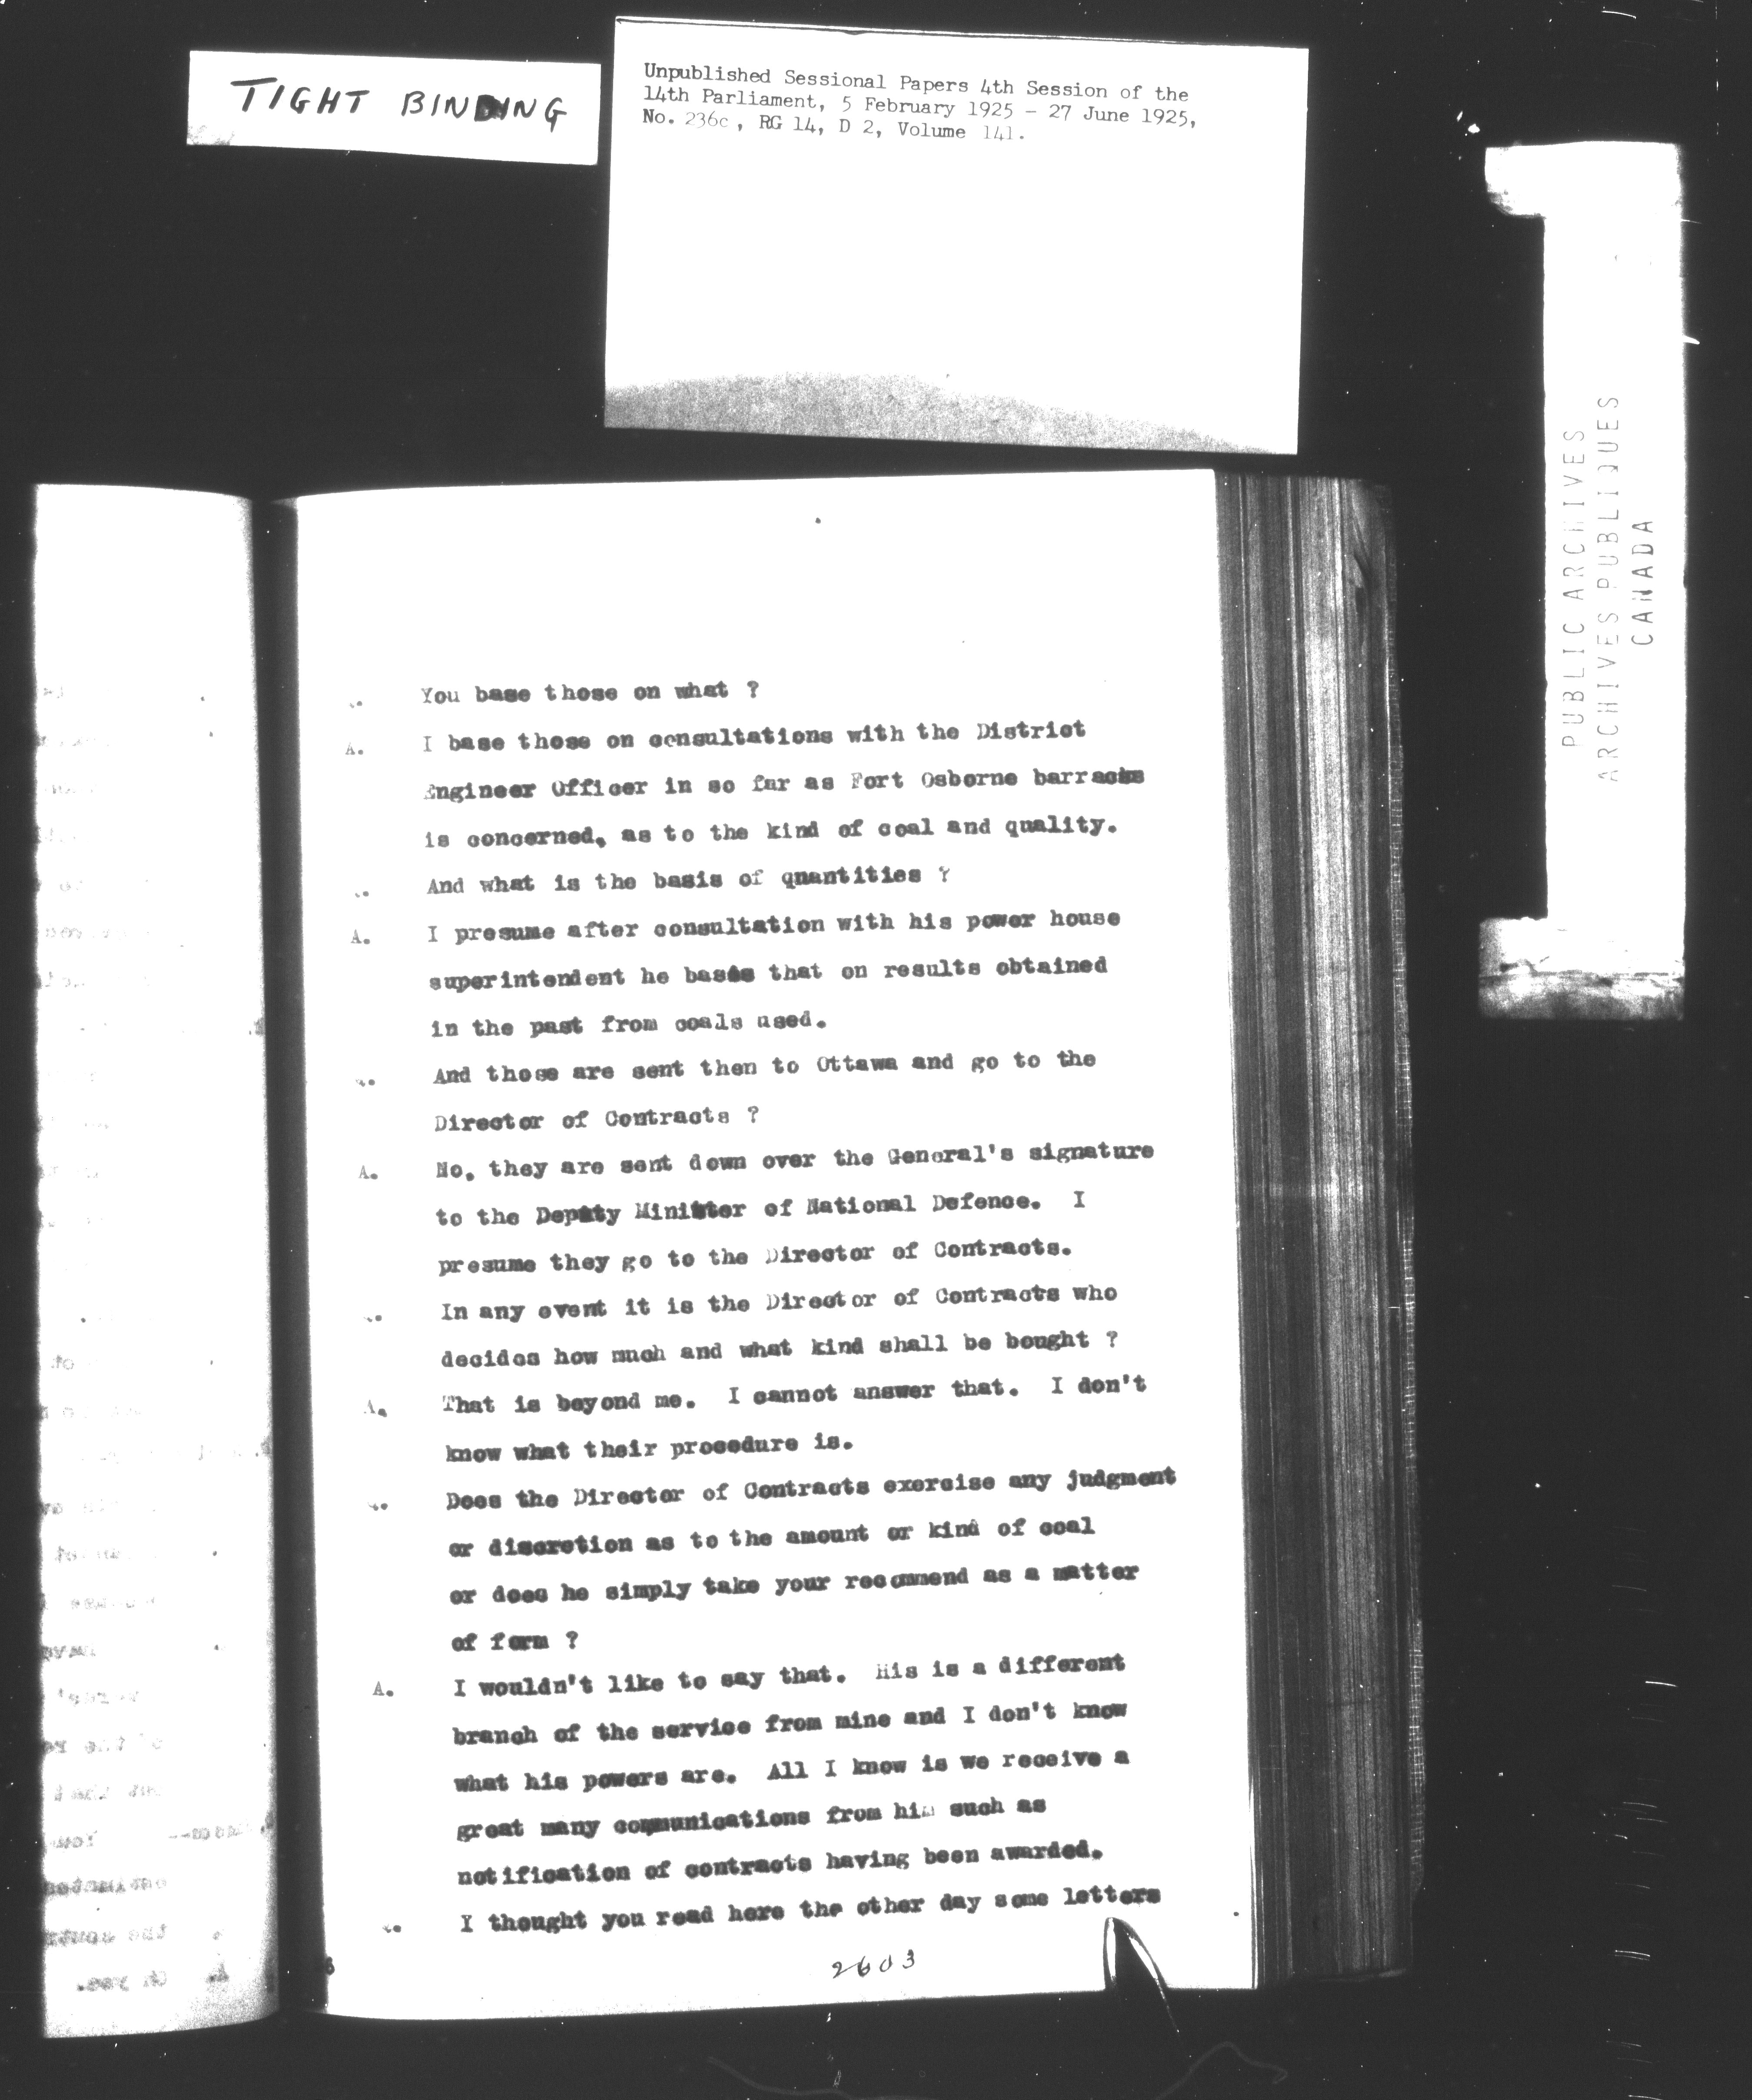 TIGHT BINDING
Unpublished Sessional Papers 4th Session of the
14th Parliament, 5 February 1925 - 27 June 1925,
No. 236c, RG 14, D 2, Volume 141.
PUBLIC ARCHIVES
ARCHIVES PUBLIQUES
CANADA
You base those on what ?
A. I base those on consultations with the District
Engineer Officer in so far as Fort Osborne barracks
is concerned, as to the kind of coal and quality.
And what is the basis of quantities ?
A. I presume after consultation with his power house
superintendent he bases that on results obtained
in the past from coals used.
And those are sent then to Ottawa and go to the
Director of Contracts ?
A. No, they are sent down over the General's signature
to the Deputy Minister of National Defence. I
presume they go to the Director of Contracts.
In any event it is the Director of Contracts who
decides how much and what kind shall be bought ?
A. That is beyond me. I cannot answer that. I don't
know what their procedure is.
Does the Director of Contracts exercise any judgment
or discretion as to the amount or kind of coal
or does he simply take your recommend as a matter
of form ?
A. I wouldn't like to say that. His is a different
branch of the service from mine and I don't know
what his powers are. All I know is we receive a
great many communications from him such as
notification of contracts having been awarded.
I thought you read here the other day some letters
2603